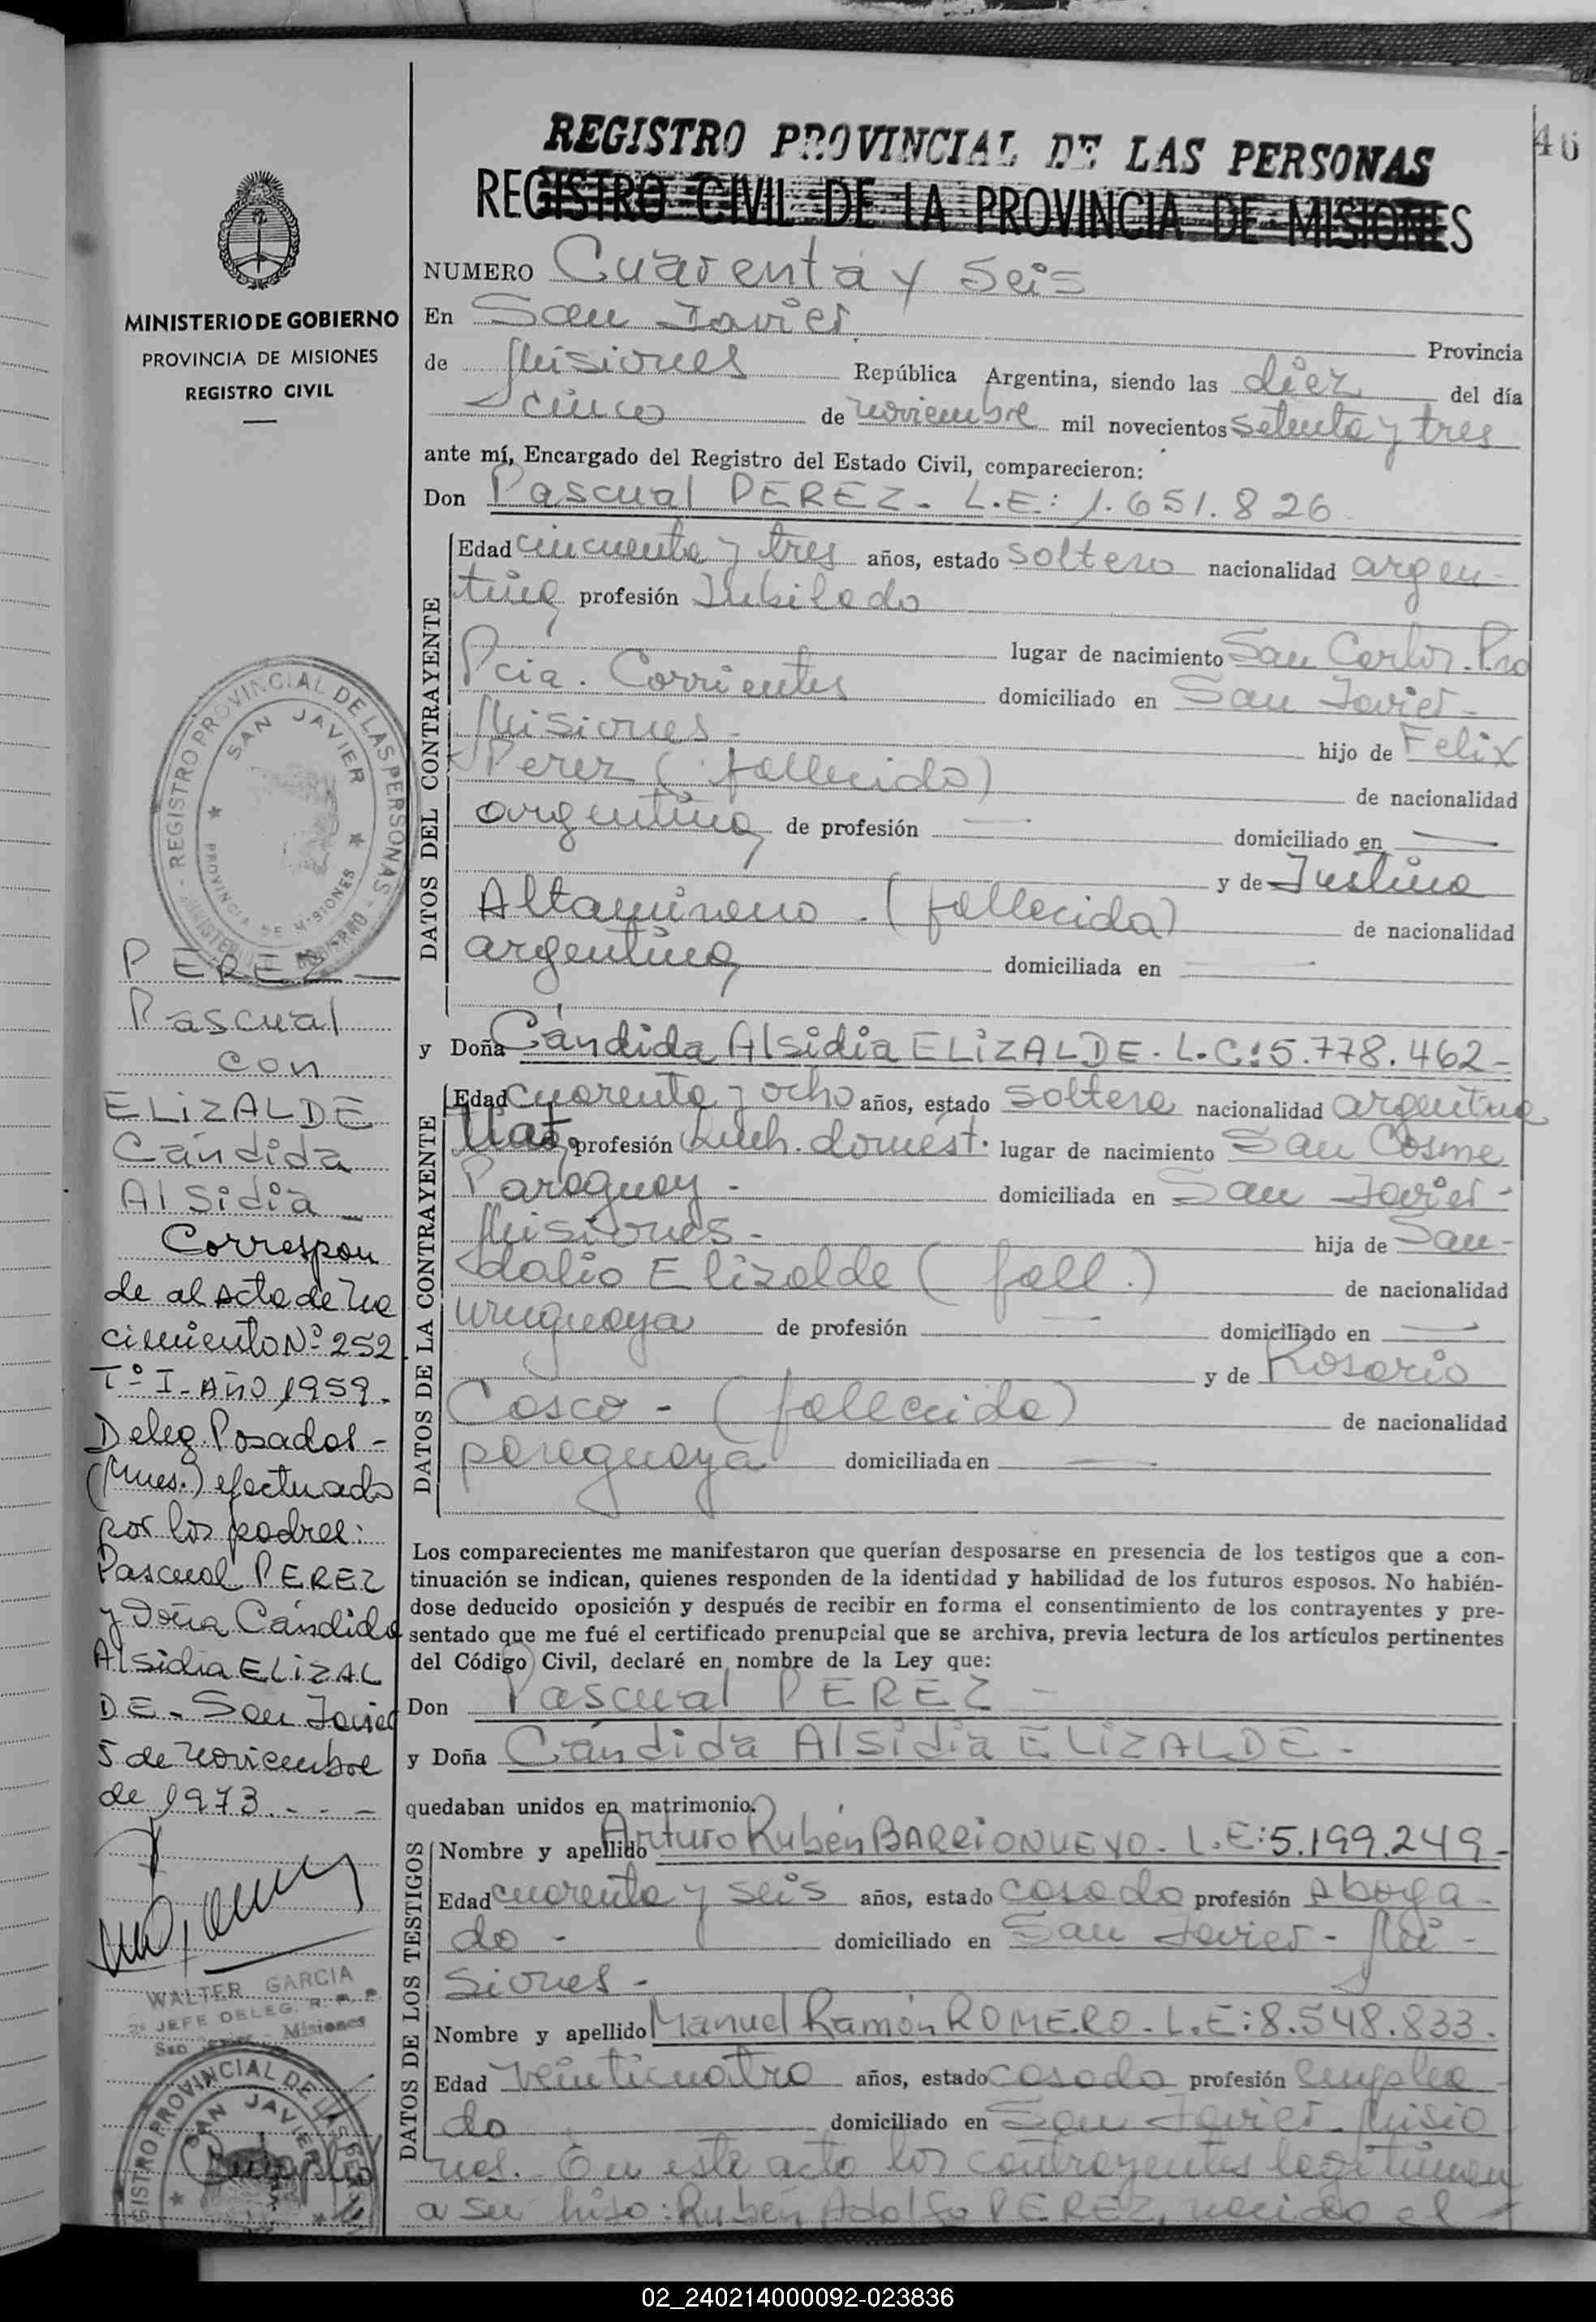 46
REGISTRO PROVINCIAL DE LAS PERSONAS
REGISTRO CIVIL DE LA PROVINCIA DE MISIONES
MINISTERIO DE GOBIERNO
PROVINCIA DE MISIONES
REGISTRO CIVIL
NUMERO Cuarenta y seis
En San Javier
Provincia
de Misiones República Argentina, siendo las diez del día
cinco de noviembre mil novecientos setenta y tres
ante mí, Encargado del Registro del Estado Civil, comparecieron:
Don Pascual PEREZ - L.E: 1.651.826
DATOS DEL CONTRAYENTE
Edad cincuenta y tres años, estado soltero nacionalidad argen-
tina profesión Jubilado
lugar de nacimiento San Carlos
Pcia. Corrientes domiciliado en San Javier -
Misiones - hijo de Felix
Perez (fallecido) de nacionalidad
argentina de profesión — domiciliado en —
y de Justina
Altamirano - (fallecida) de nacionalidad
argentina domiciliada en —
y Doña Cándida Alsidia ELIZALDE - L.C: 5.778.462 -
DATOS DE LA CONTRAYENTE
Edad cuarenta y ocho años, estado soltera nacionalidad argentina
Nat. profesión Queh. domést. lugar de nacimiento San Cosme
Paraguay - domiciliada en San Javier -
Misiones - hija de San-
dalio Elizalde (fall.) de nacionalidad
uruguaya de profesión — domiciliado en —
y de Rosario
Cosco - (fallecida) de nacionalidad
paraguaya domiciliada en —
Los comparecientes me manifestaron que querían desposarse en presencia de los testigos que a con-
tinuación se indican, quienes responden de la identidad y habilidad de los futuros esposos. No habién-
dose deducido oposición y después de recibir en forma el consentimiento de los contrayentes y pre-
sentado que me fué el certificado prenupcial que se archiva, previa lectura de los artículos pertinentes
del Código Civil, declaré en nombre de la Ley que:
Don Pascual PEREZ -
y Doña Cándida Alsidia ELIZALDE -
quedaban unidos en matrimonio.
DATOS DE LOS TESTIGOS
Nombre y apellido Arturo Rubén BARRIONUEVO - L.E: 5.199.249 -
Edad cuarenta y seis años, estado casado profesión Aboga-
do - domiciliado en San Javier - Mi-
siones -
Nombre y apellido Manuel Ramón ROMERO - L.E: 8.548.833.
Edad veinticuatro años, estado casado profesión emplea-
do domiciliado en San Javier - Misio
nes. - En este acto los contrayentes legitiman
a su hijo: Rubén Adolfo PEREZ, nacido el
REGISTRO PROVINCIAL DE LAS PERSONAS
SAN JAVIER
PROVINCIA DE MISIONES
PEREZ —
Pascual
con
ELIZALDE
Cándida
Alsidia -
Correspon
de al acta de na
cimiento Nº 252
Tº I - Año 1959 -
Deleg. Posadas -
(Mnes.) efectuado
por los padres:
Pascual PEREZ
y Doña Cándida
Alsidia ELIZAL
DE - San Javier
5 de noviembre
de 1973 - - -
WALTER GARCIA
2º JEFE DELEG. R. P. P.
San Javier - Misiones
REGISTRO PROVINCIAL DE LAS PERSONAS
SAN JAVIER
02_240214000092-023836